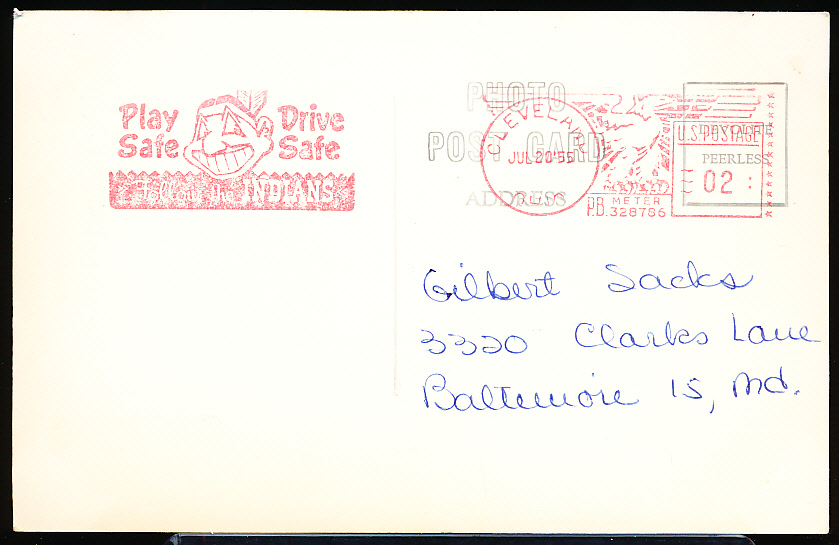 Play Drive
Safe Safe
Follow the INDIANS
PHOTO
POST CARD
ADDRESS
CLEVELAND
JUL 20 '55
OHIO
U.S. POSTAGE
PEERLESS
02
METER
P.B. 328786
Gilbert Sacks
3320 Clarks Lane
Baltimore 15, Md.